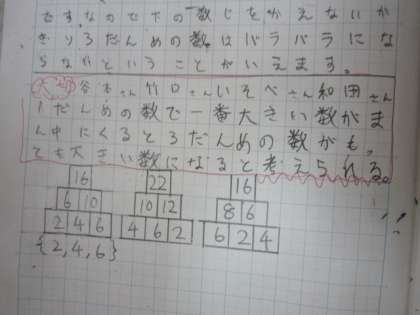 です。なので下の数じをかえないか
ぎり3だんめの数はバラバラにな
らないということがいえます。
大切 谷本さん竹口さんいそべさん和田さん
1だんめの数で一番大きい数がま
ん中にくると3だんめの数がも
とも大きい数になると考えられる。
16 22 16
6 10 10 12 8 6
2 4 6 4 6 2 6 2 4
{2,4,6}